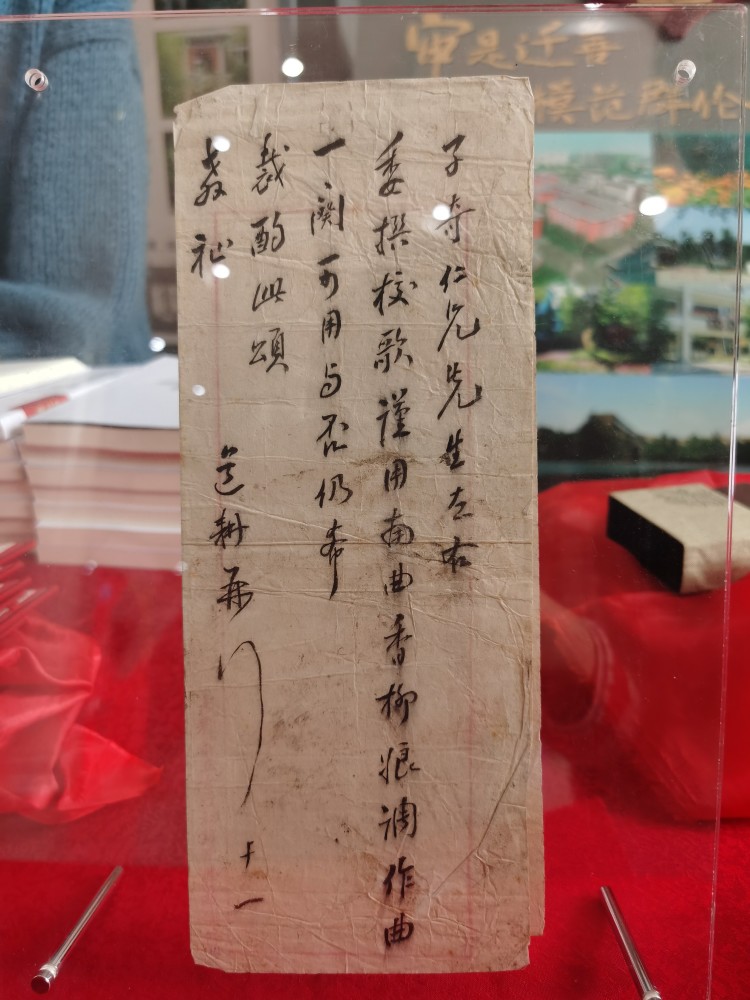 审是迁善
模范群伦
子寿仁兄先生左右
委撰校歌謹用南曲香柳娘調作曲
一闋可用与否仍希
裁酌此頌
教祉
耕
十一